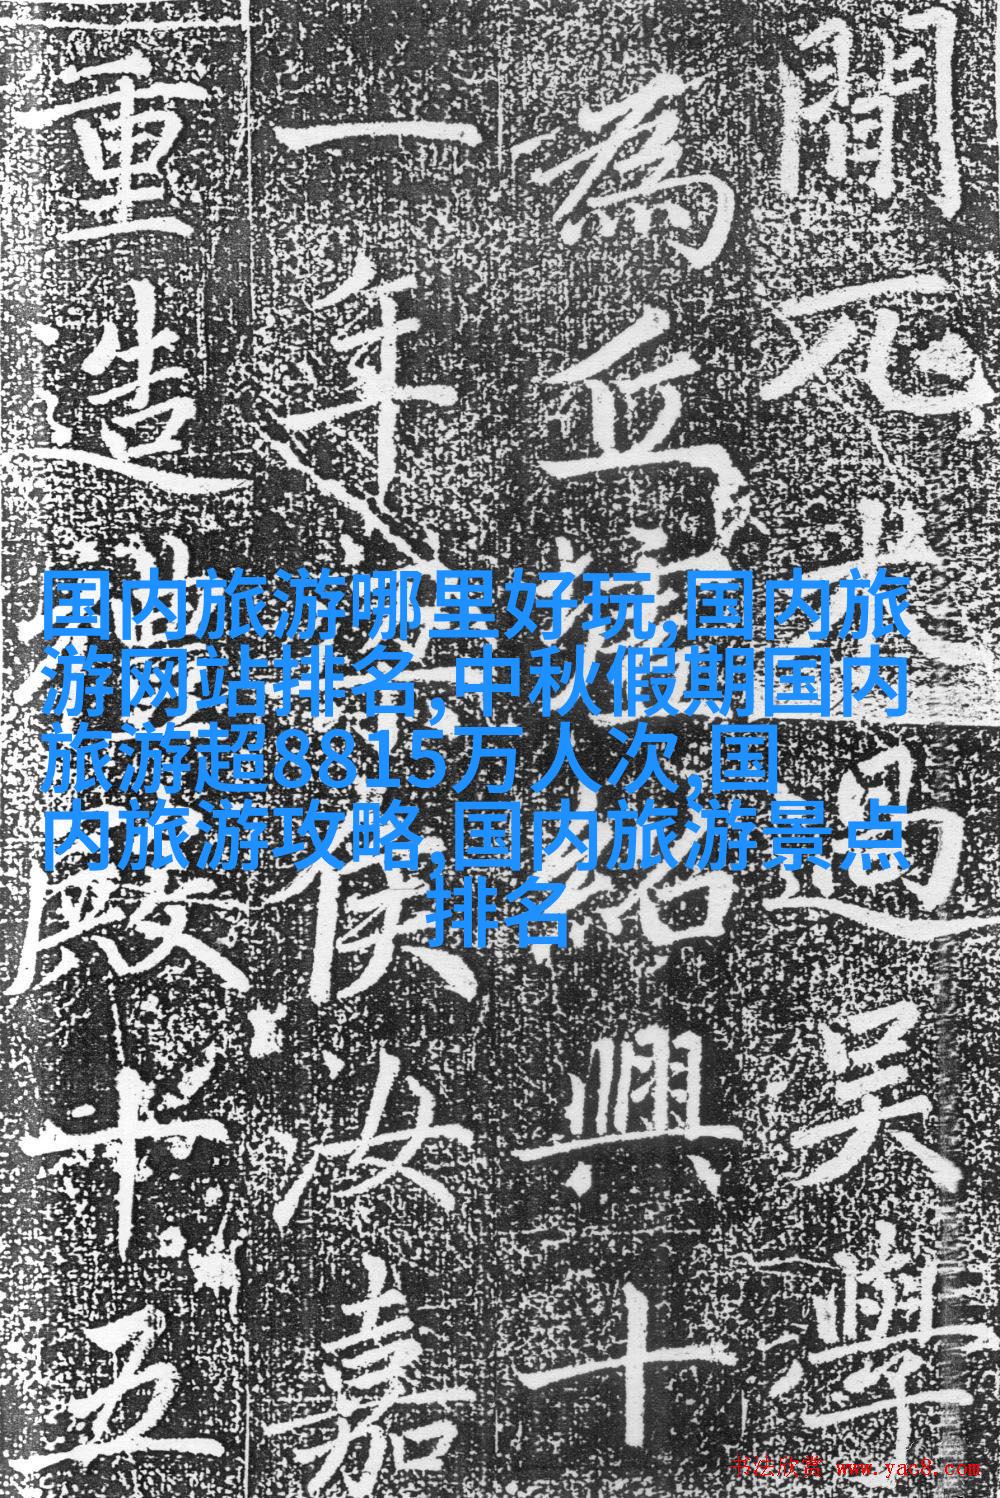 間元過吳學
為兵紹興十
一年侯汝嘉
重造殿十五
国内旅游哪里好玩,国内旅
游网站排名,中秋假期国内
旅游超8815万人次,国
内旅游攻略,国内旅游景点
排名
书法欣赏 www.yac8.com